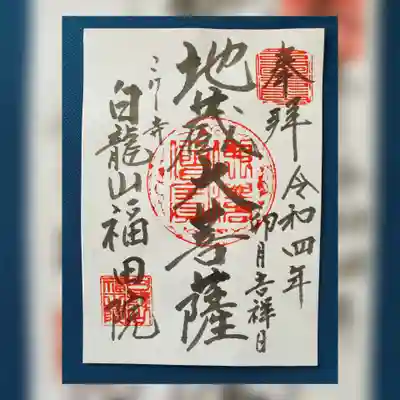 奉拝
令和四年
卯月吉祥日
地蔵大菩薩
こけし寺
白龍山福田院